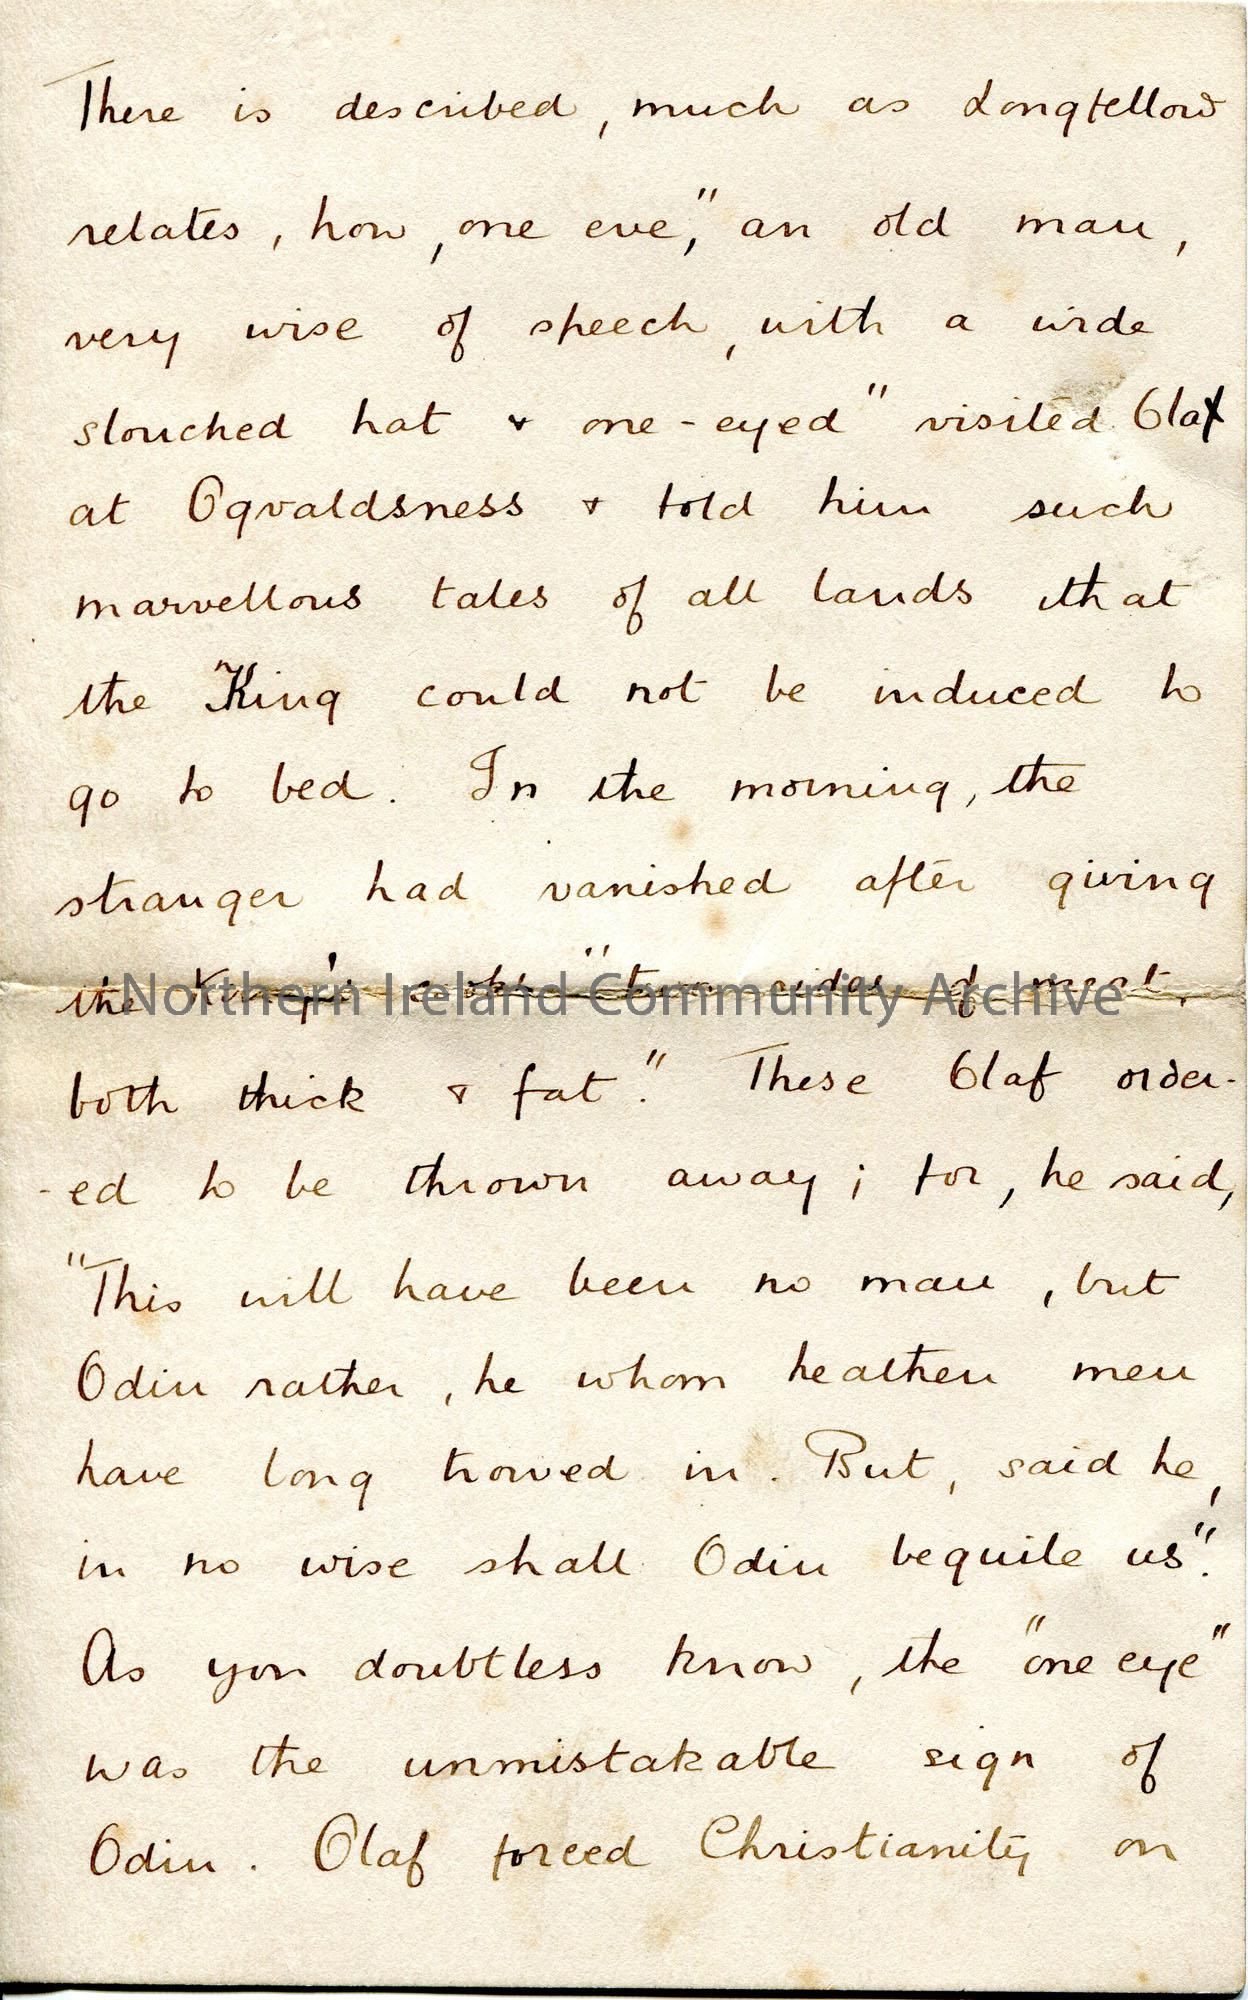 There is described, much as Longfellow
relates, how, one eve, "an old man,
very wise of speech, with a wide
slouched hat & one-eyed" visited Olaf
at Ogvaldsness & told him such
marvellous tales of all lands that
the King could not be induced to
go to bed. In the morning, the
stranger had vanished after giving
the King's cooks "two sides of meat,
Northern Ireland Community Archive
both thick & fat." These Olaf order-
-ed to be thrown away; for, he said,
"This will have been no man, but
Odin rather, he whom heathen men
have long trowed in. But, said he,
in no wise shall Odin beguile us".
As you doubtless know, the "one eye"
was the unmistakable sign of
Odin. Olaf forced Christianity on